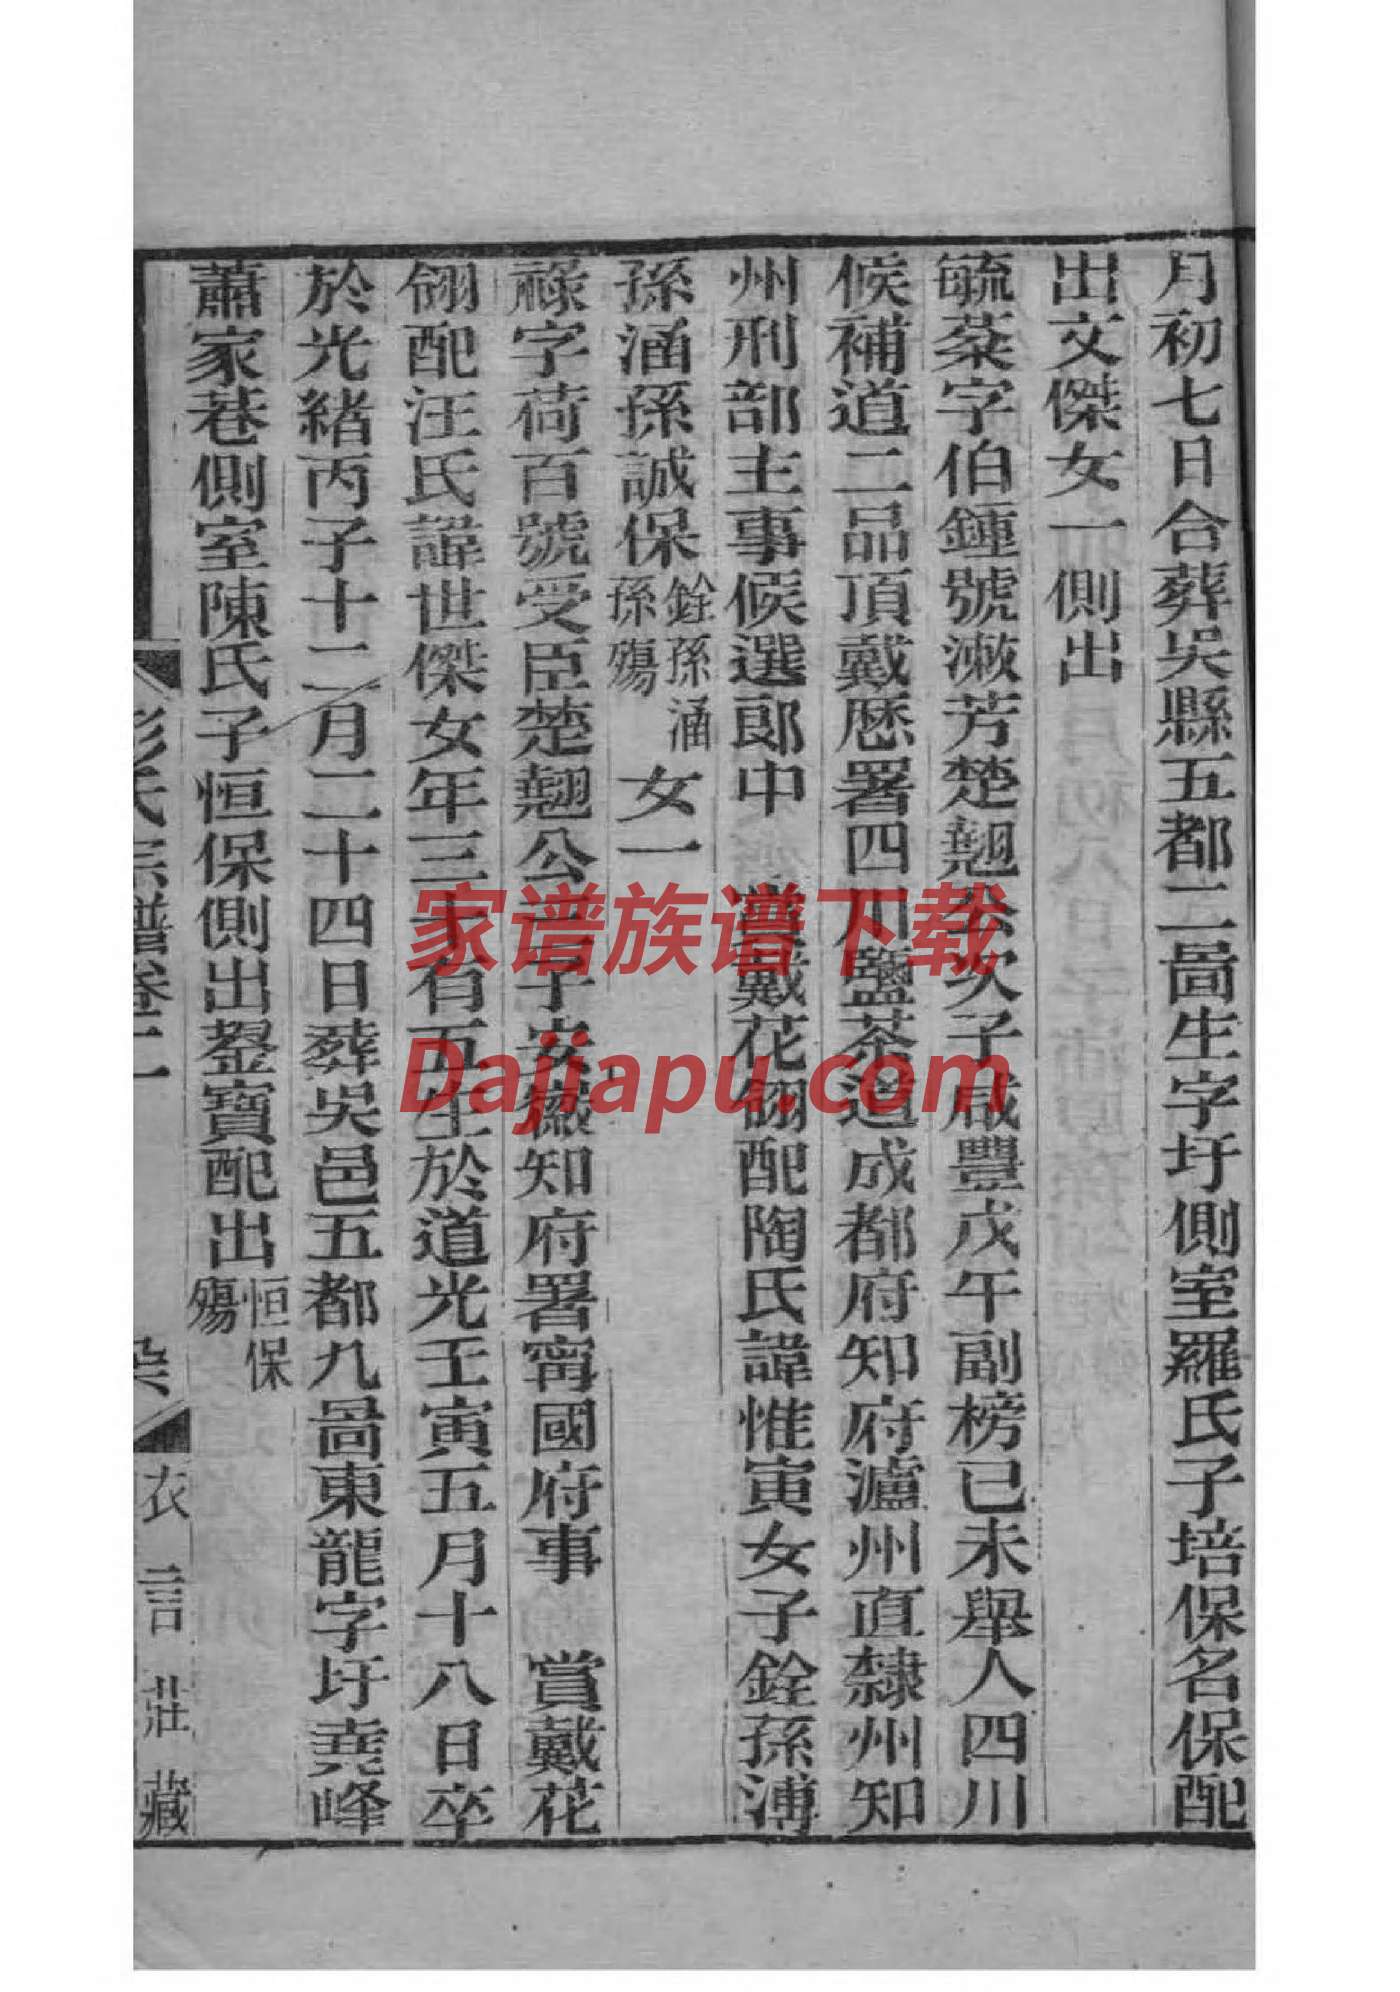 月初七日合葬吳縣五都二啚生字圩側室羅氏子培保名保配
出文傑女一側出
毓棻字伯鍾號漱芳楚翹公次子咸豐戊午副榜已未舉人四川
候補道二品頂戴歷署四川鹽茶道成都府知府瀘州直隸州知
州刑部主事候選郎中 賞戴花翎配陶氏諱惟寅女子銓孫溥
孫涵孫誠保銓孫涵孫殤女一
祿字荷百號受臣楚翹公三子安徽知府署甯國府事 賞戴花
翎配汪氏諱世傑女年三十有五生於道光壬寅五月十八日卒
於光緒丙子十二月二十四日葬吳邑五都九啚東龍字圩堯峰
蕭家巷側室陳氏子恒保側出鋆寶配出恒保殤
彭氏宗譜卷二
衣言莊藏
家谱族谱下载
Dajiapu.com